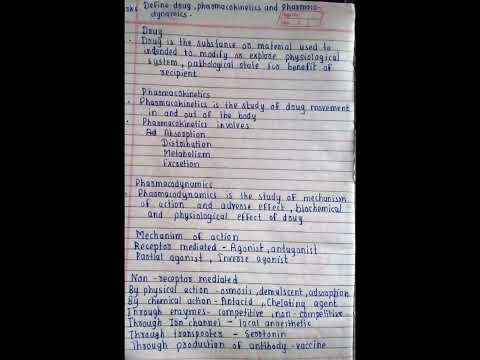 Define drug, pharmacokinetics and Pharmaco-
dynamics.
Drug
Drug is the substance or material used to
intended to modify or explore physiological
system, pathological state for benefit of
recipient
Pharmacokinetics
Pharmacokinetics is the study of drug movement
in and out of the body
Pharmacokinetics involves
Ad Absorption
Distribution
Metabolism
Excretion
Pharmacodynamics
Pharmacodynamics is the study of mechanism
of action and adverse effect, biochemical
and physiological effect of drug
Mechanism of action
Receptor mediated - Agonist, antagonist
Partial agonist, Inverse agonist
Non-receptor mediated
By physical action - osmosis, demulscent, adsorption
By chemical action - Antacid, Chelating agent
Through enzymes - competitive, non-competitive
Through Ion channel - local anaesthetic
Through transporter - Serotonin
Through production of antibody - vaccine